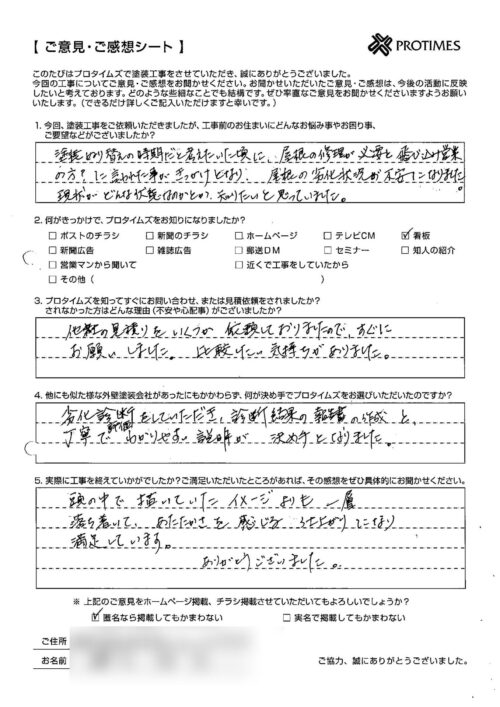 【 ご意見・ご感想シート 】
PROTIMES
このたびはプロタイムズで塗装工事をさせていただき、誠にありがとうございました。
今回の工事についてご意見・ご感想をお聞かせください。お聞かせいただいたご意見・ご感想は、今後の活動に反映
したいと考えております。どのような些細なことでも結構です。ぜひ率直なご意見をお聞かせくださいますようお願い
いたします。（できるだけ詳しくご記入いただけますと幸いです。）
1. 今回、塗装工事をご依頼いただきましたが、工事前のお住まいにどんなお悩み事やお困り事、
ご要望などがございましたか?
塗装ぬり替えの時期だと考えていた頃に、屋根の修理が必要と飛び込み営業
の方々に言われた事がきっかけとなり、屋根の劣化状況が不安になりました
現状がどんな状態なのかとか、知りたいと思っていました。
2. 何がきっかけで、プロタイムズをお知りになりましたか?
□ ポストのチラシ □ 新聞のチラシ □ ホームページ □ テレビCM ☑ 看板
□ 新聞広告 □ 雑誌広告 □ 郵送DM □ セミナー □ 知人の紹介
□ 営業マンから聞いて □ 近くで工事をしていたから
□ その他 ( )
3. プロタイムズを知ってすぐにお問い合わせ、または見積依頼をされましたか?
されなかった方はどんな理由（不安や心配事）がございましたか?
他社の見積りをいくつか依頼しておりましたので、すぐに
お願いしました。比較したい気持ちがありました。
4. 他にも似た様な外壁塗装会社があったにもかかわらず、何が決め手でプロタイムズをお選びいただいたのですか?
劣化診断をしていただき、診断結果の報告書の作成と、
丁寧で わかりやすい説明が 決め手となりました。
5. 実際に工事を終えていかがでしたか?ご満足いただいたところがあれば、その感想をぜひ具体的にお聞かせください。
頭の中で 描いていた イメージよりも 一層
落ち着いて、あたたかさを 感じる 仕上がりになり
満足しています。
ありがとうございました。
※ 上記のご意見をホームページ掲載、チラシ掲載させていただいてもよろしいでしょうか?
☑ 匿名なら掲載してもかまわない □ 実名で掲載してもかまわない
ご住所
お名前
ご協力、誠にありがとうございました。